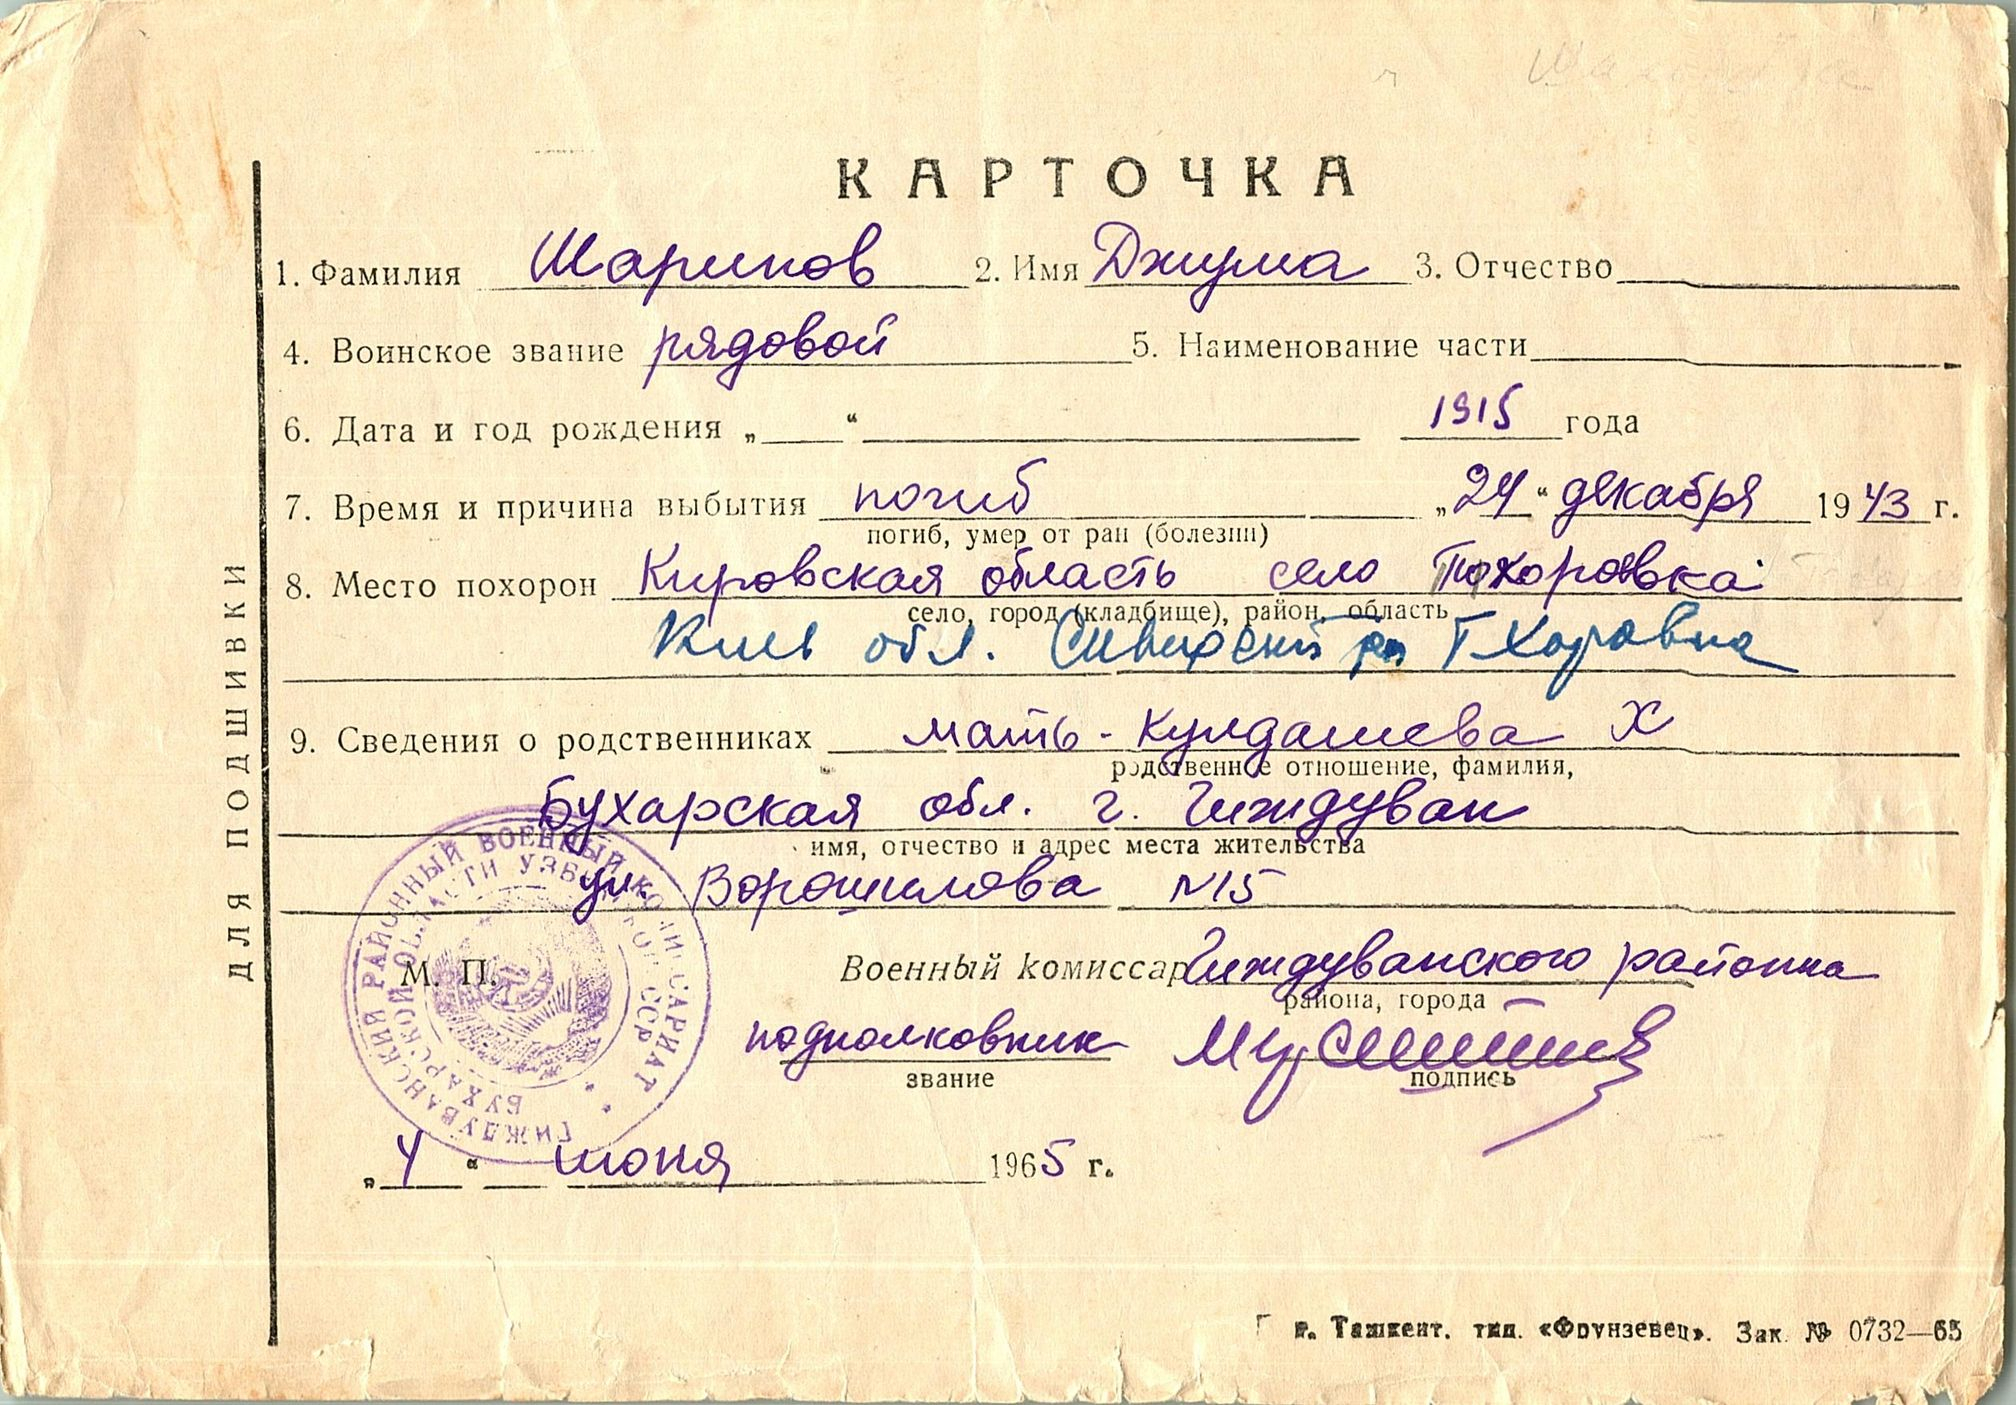 КАРТОЧКА
1. Фамилия Шарипов 2. Имя Джума 3. Отчество
4. Воинское звание рядовой 5. Наименование части
6. Дата и год рождения „ “ 1915 года
7. Время и причина выбытия погиб „24“ декабря 1943 г.
погиб, умер от ран (болезни)
8. Место похорон Кировская область село Тохоровка
село, город (кладбище), район, область
Киев обл. р-н Т Хоровка
9. Сведения о родственниках мать - Кулдашева Х
родственное отношение, фамилия,
Бухарская обл. г. Гиждуван
имя, отчество и адрес места жительства
ул. Ворошилова №15
М. П. Военный комиссар Гиждуванского района
района, города
подполковник
звание подпись
„4“ июня 1965 г.
ДЛЯ ПОДШИВКИ
ГИЖДУВАНСКИЙ РАЙОННЫЙ ВОЕННЫЙ КОМИССАРИАТ
БУХАРСКОЙ ОБЛАСТИ УЗБЕКСКОЙ ССР
г. Ташкент. тип. «Фрунзевец». Зак. № 0732—65